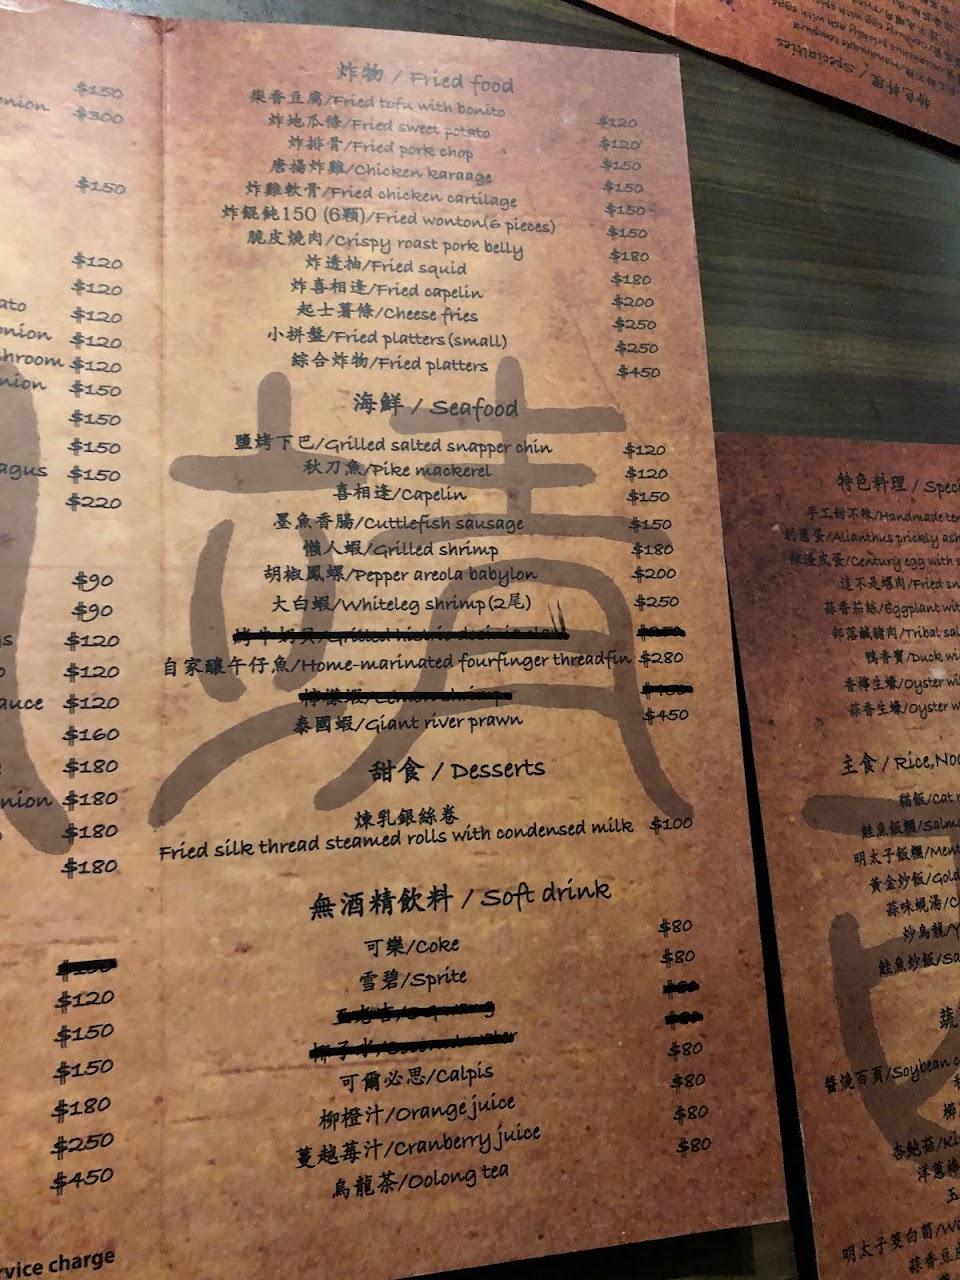 炸物 / Fried food
柴香豆腐/Fried tofu with bonito $120
炸地瓜條/Fried sweet potato $120
炸排骨/Fried pork chop $150
唐揚炸雞/Chicken karaage $150
炸雞軟骨/Fried chicken cartilage $150
炸餛飩150 (6顆)/Fried wonton(6 pieces) $150
脆皮燒肉/Crispy roast pork belly $180
炸透抽/Fried squid $180
炸喜相逢/Fried capelin $200
起士薯條/Cheese fries $250
小拼盤/Fried platters(small) $250
綜合炸物/Fried platters $450
海鮮 / Seafood
鹽烤下巴/Grilled salted snapper chin $120
秋刀魚/Pike mackerel $120
喜相逢/Capelin $150
墨魚香腸/Cuttlefish sausage $150
懶人蝦/Grilled shrimp $180
胡椒鳳螺/Pepper areola babylon $200
大白蝦/Whiteleg shrimp(2尾) $250
自家釀午仔魚/Home-marinated fourfinger threadfin $280
泰國蝦/Giant river prawn $450
甜食 / Desserts
煉乳銀絲卷
Fried silk thread steamed rolls with condensed milk $100
無酒精飲料 / Soft drink
可樂/Coke $80
雪碧/Sprite $80
可爾必思/Calpis $80
柳橙汁/Orange juice $80
蔓越莓汁/Cranberry juice $80
烏龍茶/Oolong tea $80
$150
onion $300
$150
$120
$120
ato $120
onion $120
hroom $120
nion $150
$150
$150
agus $150
$220
$90
$90
$120
$120
auce $120
$160
$180
nion $180
$180
$180
$120
$150
$150
$180
$250
$450
rvice charge
特色料理 / Specialties
特色料理 / Speci
手工甜不辣/Handmade te
剝蔥蛋/Alianthus prickly ash
皮蛋/Century egg with s
這不是螺肉/Fried sn
蒜香茄絲/Eggplant wit
部落鹹豬肉/Tribal sal
鴨香寶/Duck wi
香檸生蠔/Oyster wi
蒜香生蠔/Oyster wi
主食 / Rice, Noo
貓飯/Cat r
鮭魚飯糰/Salmo
明太子飯糰/Ment
黃金炒飯/Gold
蒜味蜆湯/C
炒烏龍/Y
鮭魚炒飯/Sa
蔬
醬燒百頁/Soybean c
杏鮑菇/Ki
洋蔥
五
明太子筊白筍/W
蒜香豆